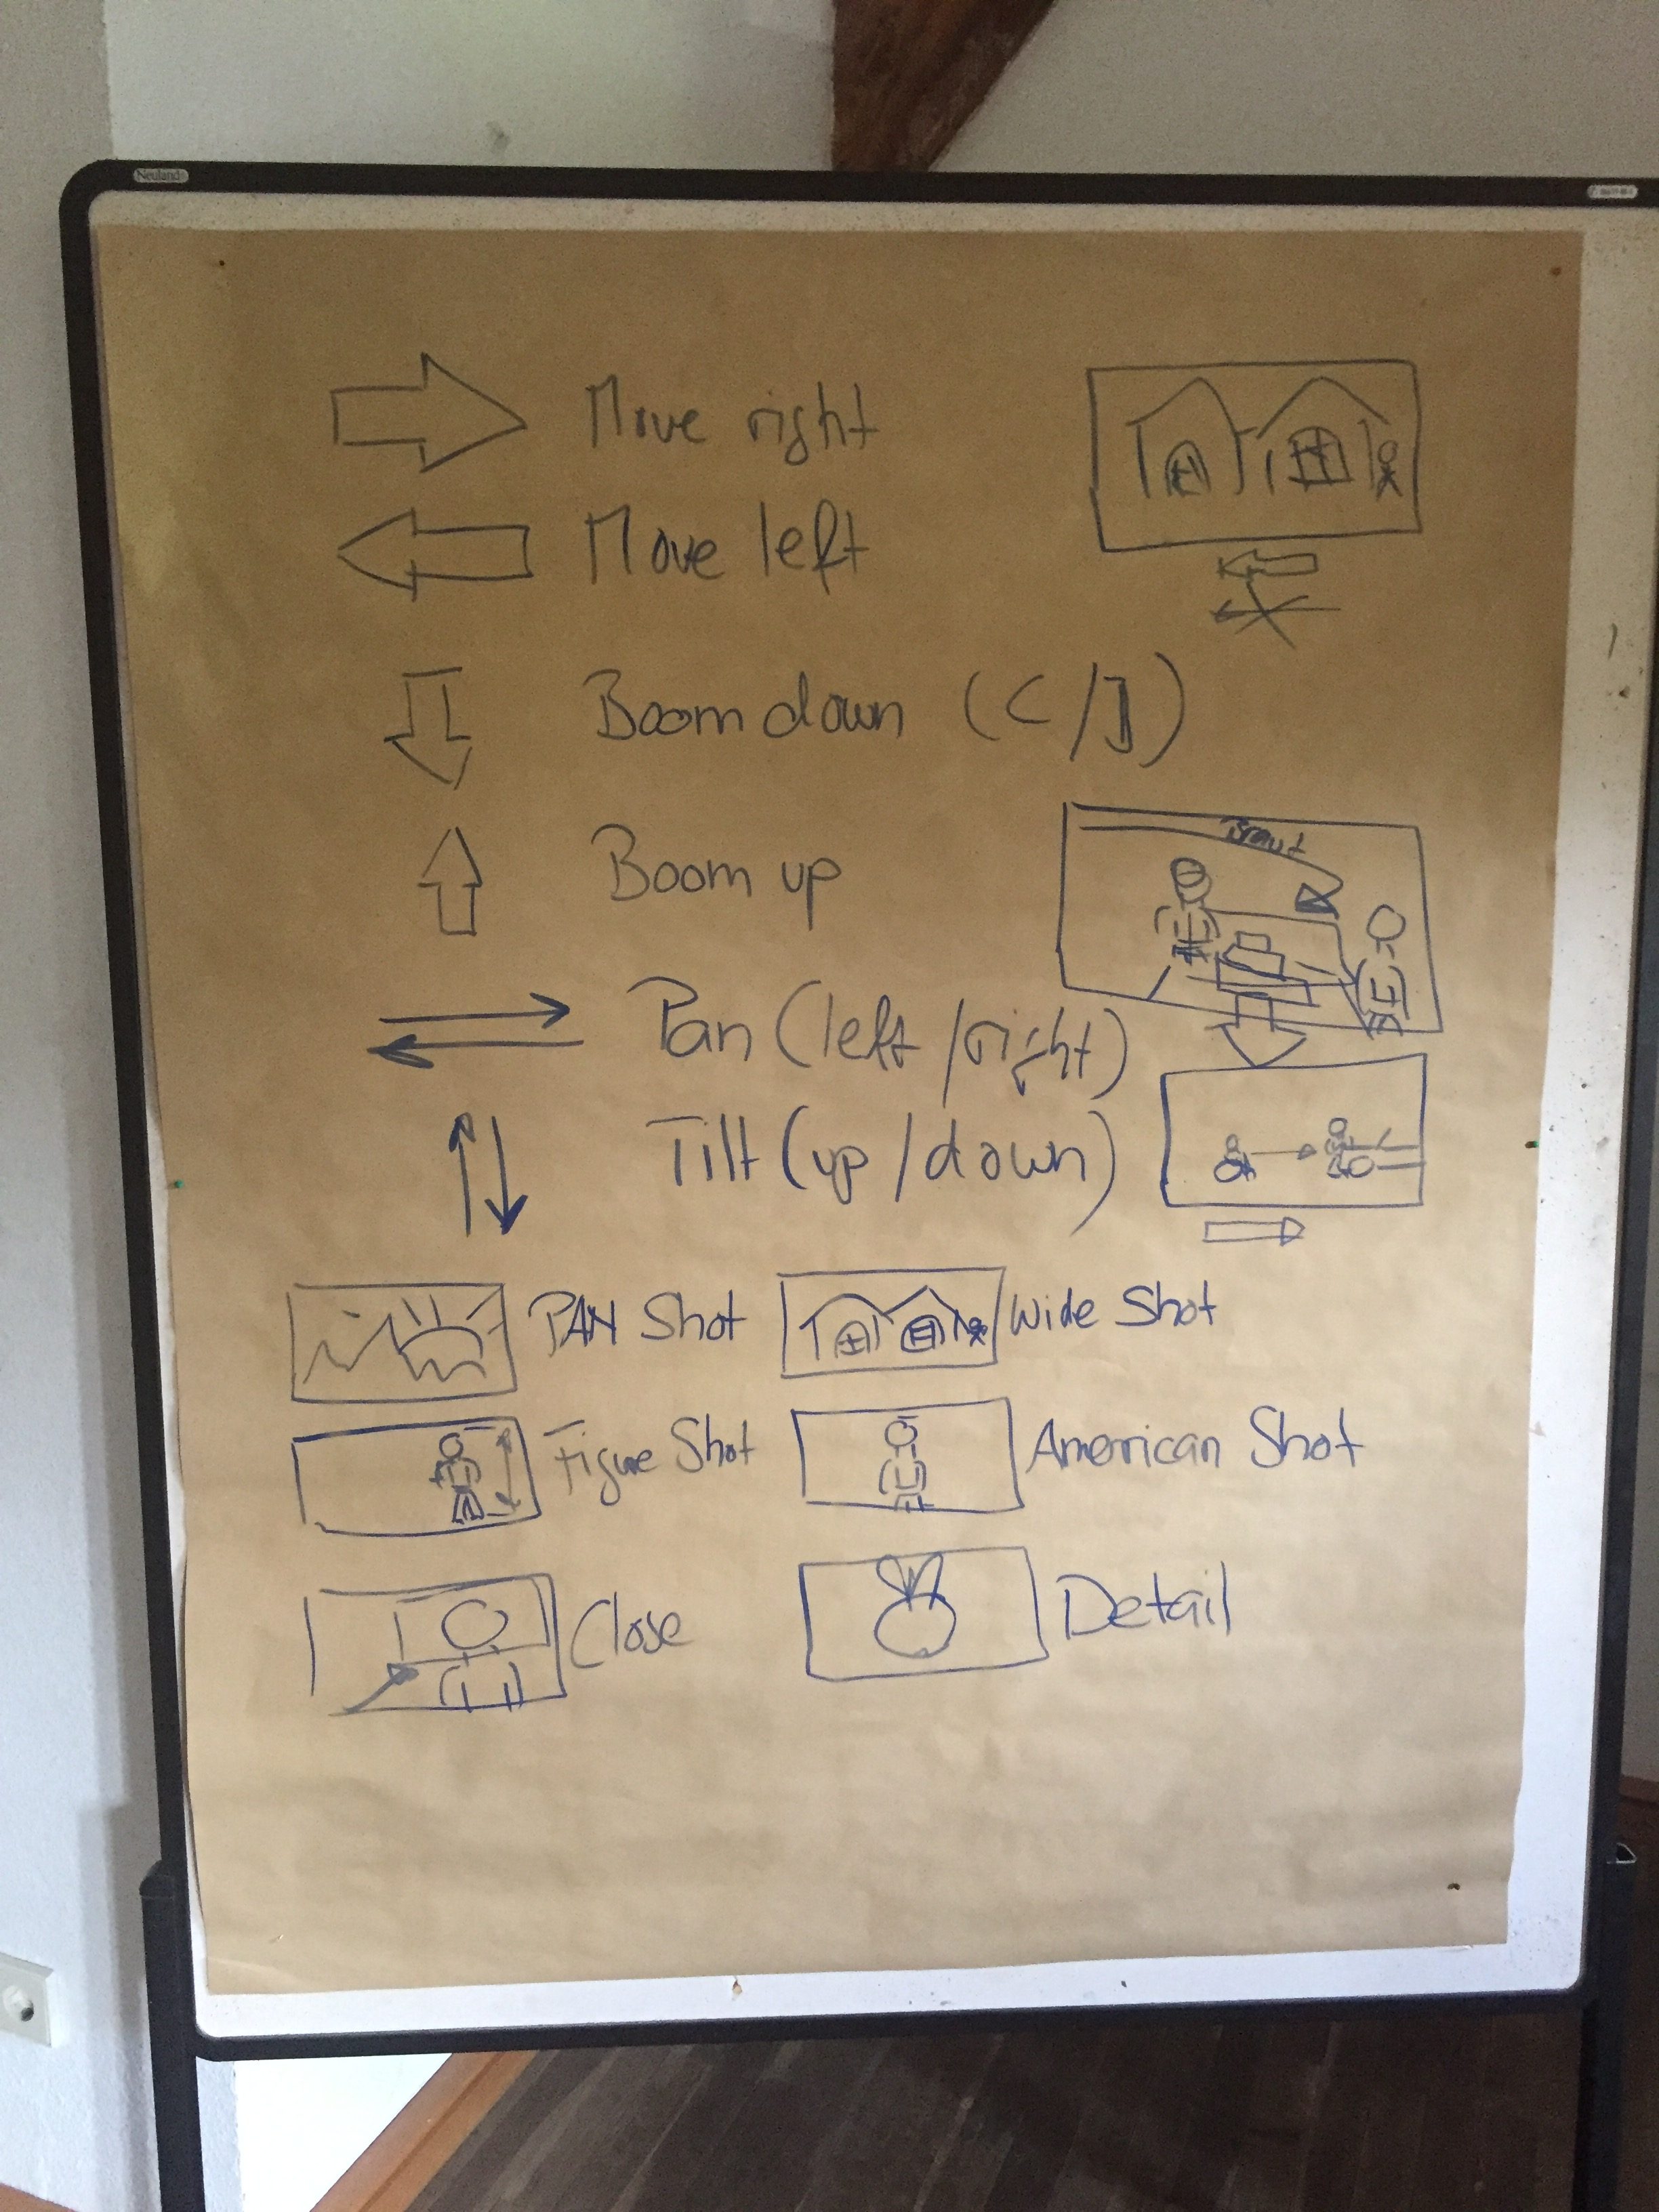 Neuland
Move right
Move left
Boom down (C/D)
Boom up
Pan (left/right)
Tilt (up/down)
PAN Shot
Wide Shot
Figure Shot
American Shot
Close
Detail